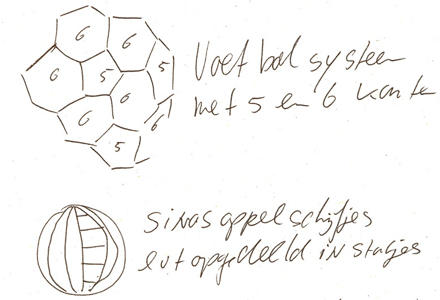 6 6
6 5 5
6 6 6
5
Voet bal systeem
met 5 en 6 kanten
sinas appel schijfjes
evt opgedeeld in stukjes